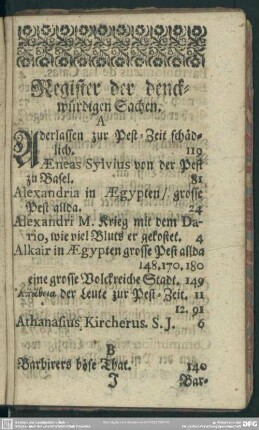 Register der denck-
würdigen Sachen.
A
Aderlassen zur Pest-Zeit schäd-
lich. 119
Æneas Sylvius von der Pest
zu Basel. 81
Alexandria in Ægypten/ grosse
Pest allda. 24
Alexandri M. Krieg mit dem Da-
rio, wie viel Bluts er gekostet. 4
Alkair in Ægypten grosse Pest allda
148, 170, 180
eine grosse Volckreiche Stadt. 149
der Leute zur Pest-Zeit. 11
12. 91
Athanasius Kircherus. S. J. 6
B
Barbirers böse That. 140
J Bar-